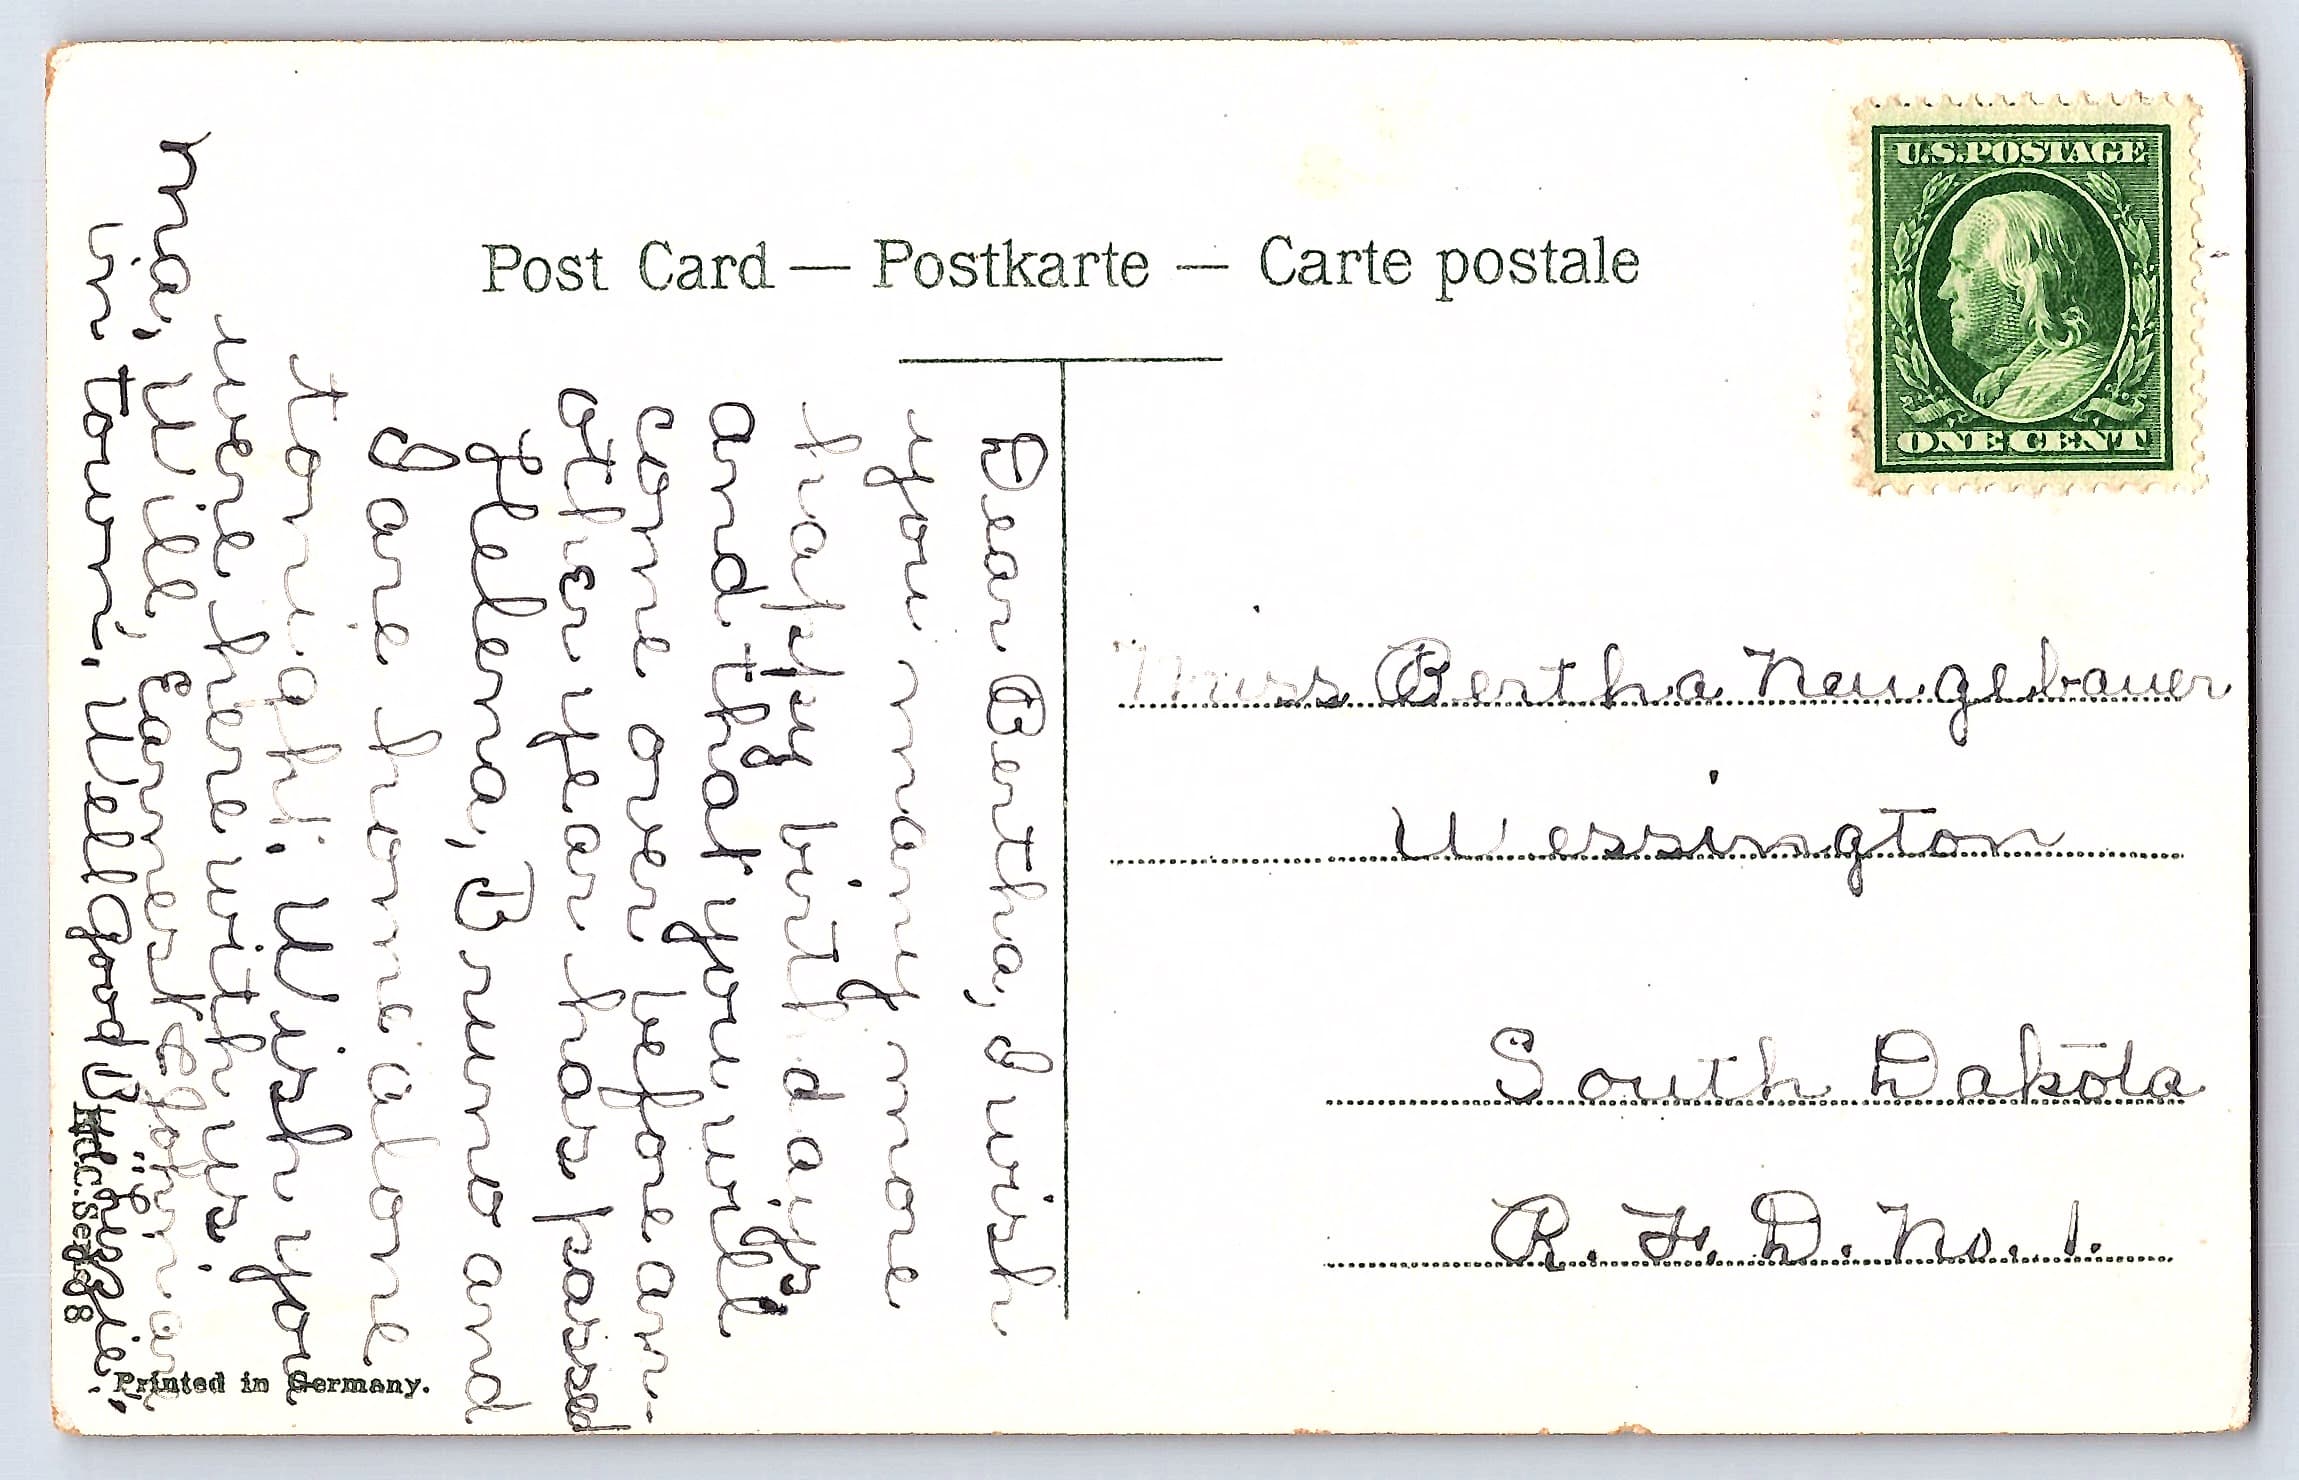 Post Card — Postkarte — Carte postale
U.S. POSTAGE
ONE CENT
Dear Bertha, I wish
you many more
happy birthdays
and that you will
come over before an-
other year has passed
Helena, Bruno and
I are home alone
tonight. Wish you
were here with us.
Ma, Will, Earnest & John are
in town. Well Good B
Printed in Germany.
Miss Bertha Neugebauer
Wessington
South Dakota
R. F. D. No. 1.